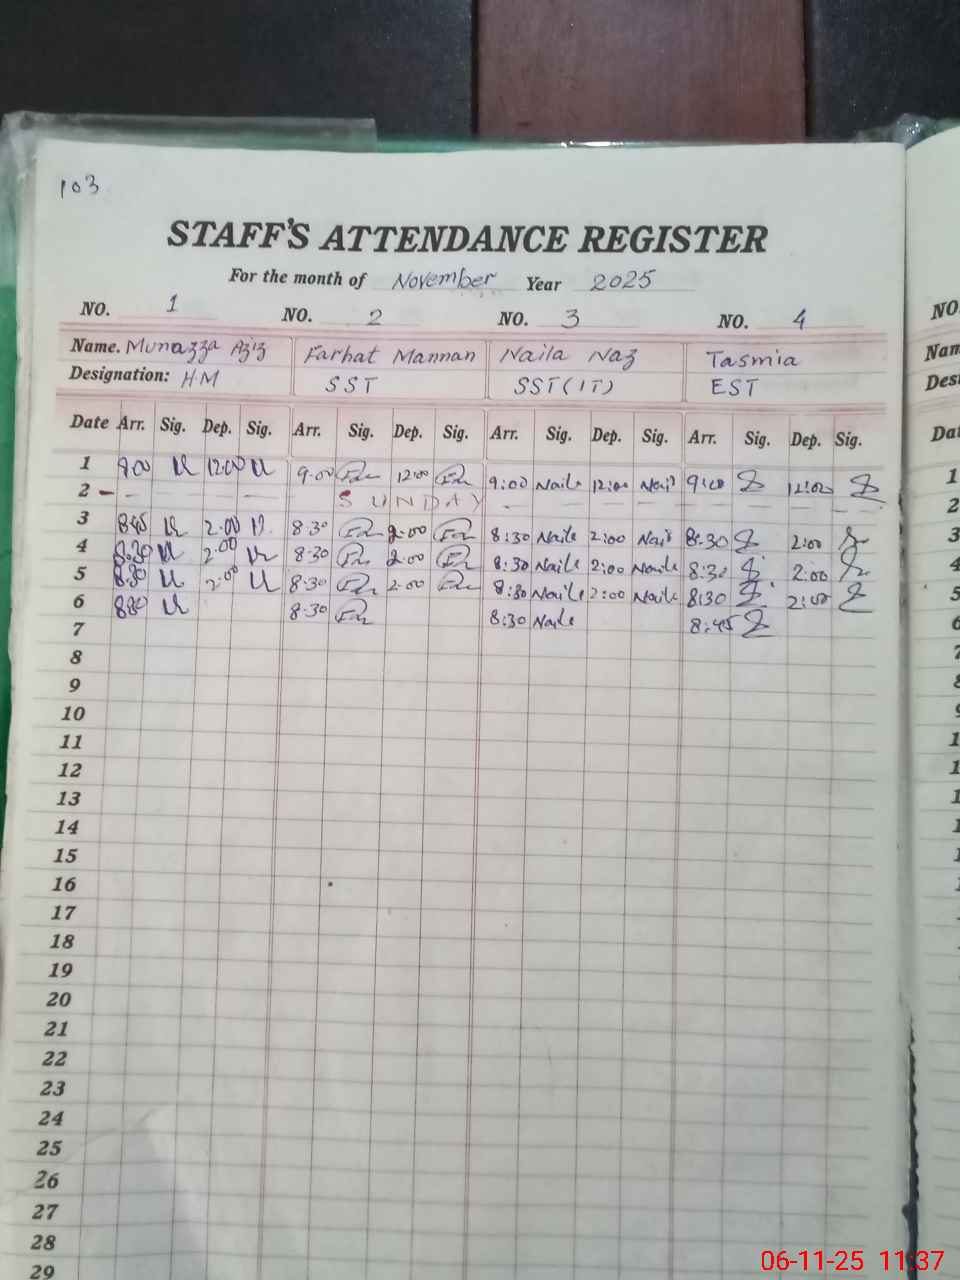 103
STAFF'S ATTENDANCE REGISTER
For the month of November Year 2025
NO. 1 NO. 2 NO. 3 NO. 4 NO
Name. Munazza Aziz Farhat Mannan Naila Naz Tasmia Nam
Designation: HM SST SST (IT) EST Desi
Date Arr. Sig. Dep. Sig. Arr. Sig. Dep. Sig. Arr. Sig. Dep. Sig. Arr. Sig. Dep. Sig. Da
1 12:00 9:00 12:00 9:00 Naila 12:00 Nail 9:00 12:00 1
2 - SUNDAY 2
3 8:45 2:00 8:30 2:00 8:30 Naila 2:00 Naila 8:30 2:00 3
4 8:30 2:00 8:30 2:00 8:30 Naila 2:00 Naila 8:30 2:00 4
5 8:30 2:00 8:30 2:00 8:30 Naila 2:00 Naila 8:30 2:00 5
6 8:30 8:30 8:30 Naila 8:45 6
7 7
8
9
10 9
11 1
12 1
13 1
14 1
15 1
16 1
17
18
19
20
21
22
23
24
25
26
27
28
29
06-11-25 11:37